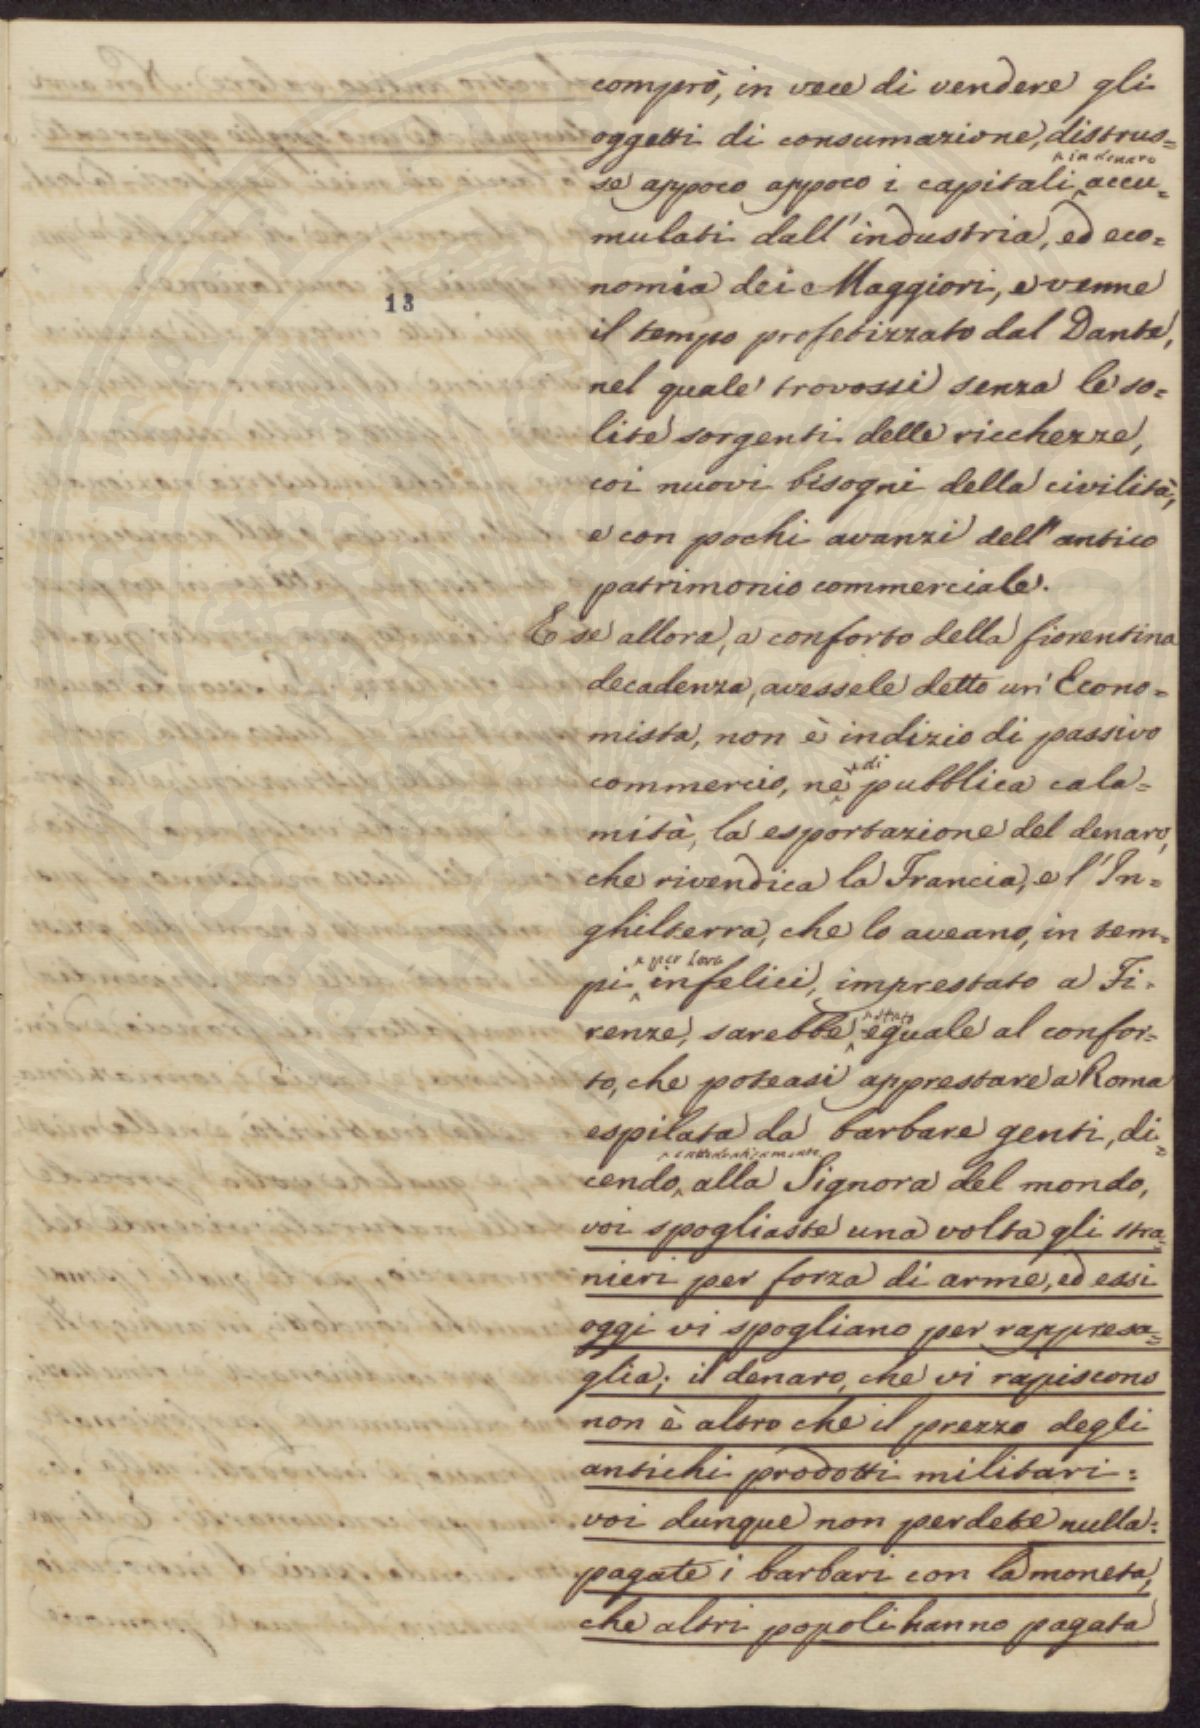 comprò, in vece di vendere gli
oggetti di consumazione, distrus=
se appoco appoco i capitali ^in denaro accu=
mulati dall'industria, ed eco=
nomia dei Maggiori, e venne
13
il tempo profetizzato dal Dante,
nel quale trovossi senza le so=
lite sorgenti delle ricchezze,
coi nuovi bisogni della civiltà,
e con pochi avanzi dell'antico
patrimonio commerciale.
E se allora, a conforto della fiorentina
decadenza, avessele detto un'Econo=
mista, non è indizio di passivo
commercio, nè ^di pubblica cala=
mità, la esportazione del denaro,
che rivendica la Francia, e l'In=
ghilterra, che lo aveano, in tem=
pi ^per loro infelici, imprestato a Fi=
renze, sarebbe ^stato eguale al confor=
to, che poteasi apprestare a Roma
espilata da barbare genti, di=
cendo, alla Signora del mondo,
voi spogliaste una volta gli stra=
nieri per forza di arme, ed essi
oggi vi spogliano per rappresa=
glia; il denaro, che vi rapiscono
non è altro che il prezzo degli
antichi prodotti militari =
voi dunque non perdete nulla =
pagate i barbari con la moneta,
che altri popoli hanno pagata